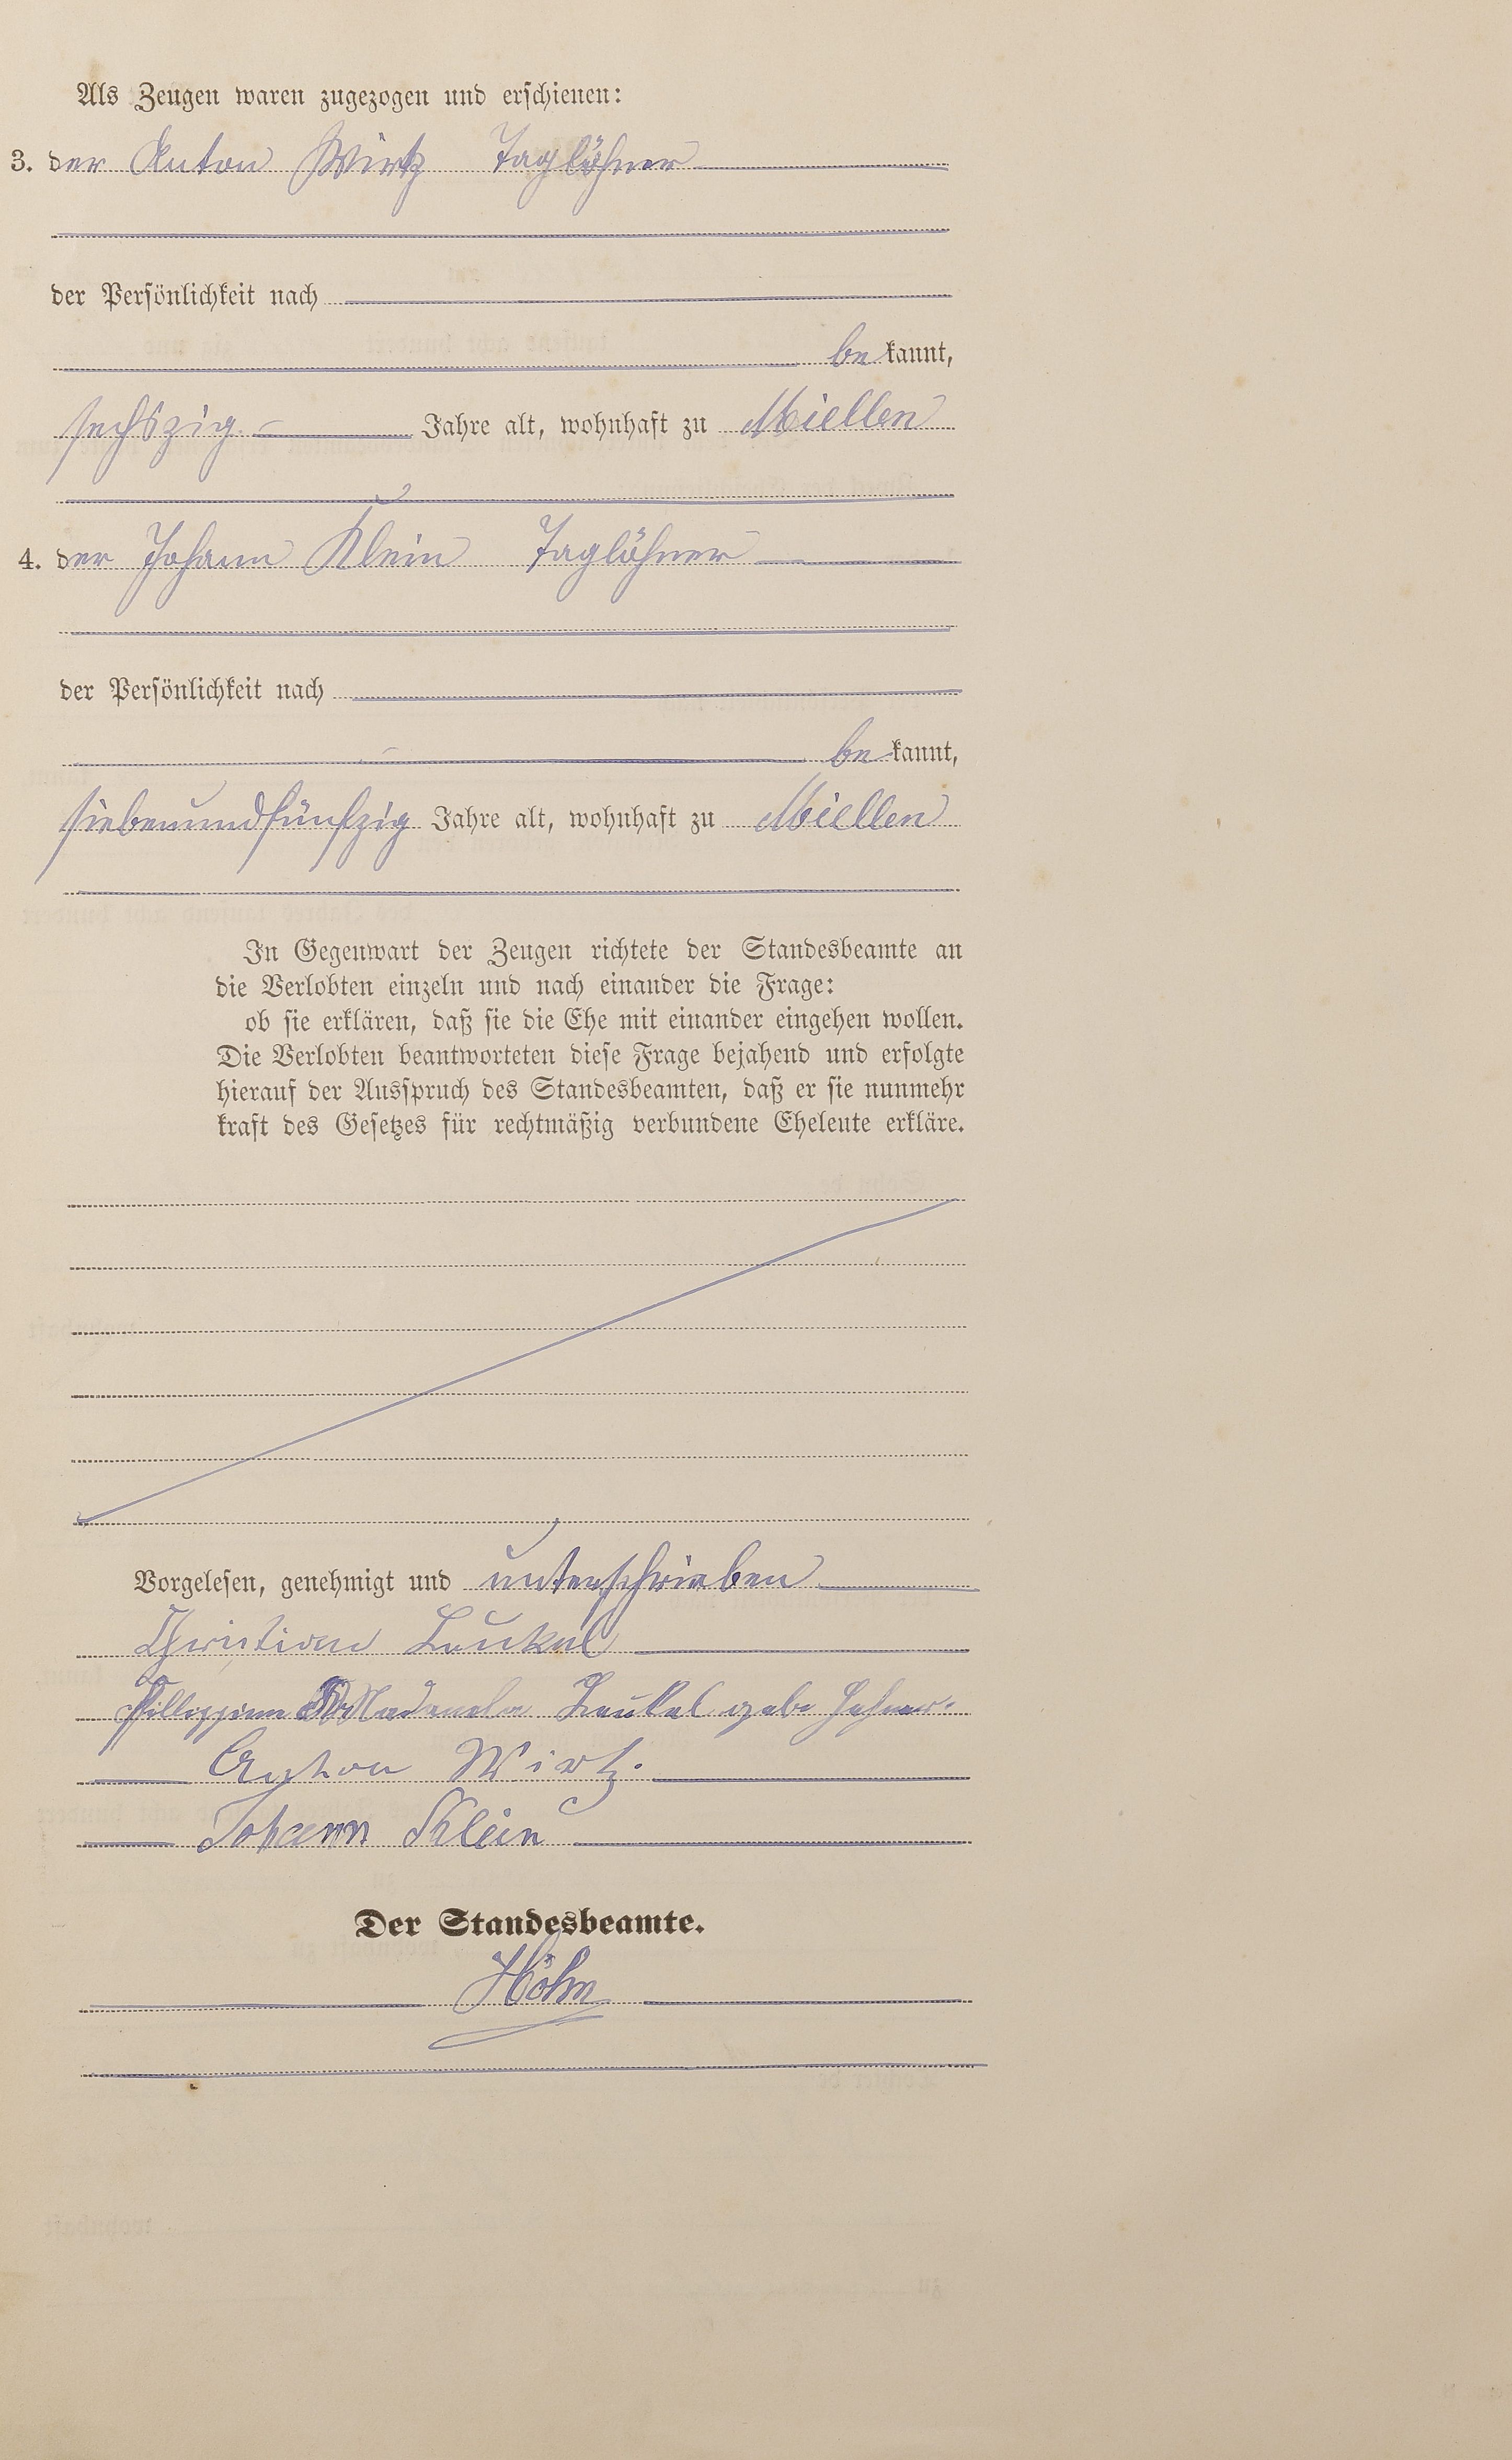 Als Zeugen waren zugezogen und erschienen:
3. der Anton Wirtz Taglöhner
der Persönlichkeit nach
be kannt,
sechszig Jahre alt, wohnhaft zu Miellen
4. der Johann Klein Taglöhner
der Persönlichkeit nach
be kannt,
siebenundfünfzig Jahre alt, wohnhaft zu Miellen
In Gegenwart der Zeugen richtete der Standesbeamte an
die Verlobten einzeln und nach einander die Frage:
ob sie erklären, daß sie die Ehe mit einander eingehen wollen.
Die Verlobten beantworteten diese Frage bejahend und erfolgte
hierauf der Ausspruch des Standesbeamten, daß er sie nunmehr
kraft des Gesetzes für rechtmäßig verbundene Eheleute erkläre.
Vorgelesen, genehmigt und unterschrieben
Christian Leukel
Leukel gebe
Anton Wirtz.
Johann Klein
Der Standesbeamte.
Höhn